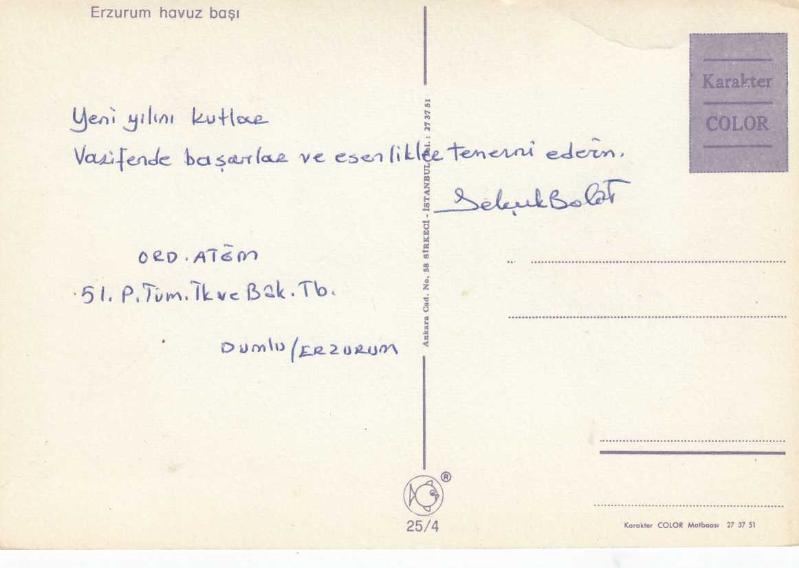 Erzurum havuz başı
Karakter
COLOR
Yeni yılını kutlar
Vazifende başarılar ve esenlikler temenni ederim.
Selçuk Bolat
ORD. ATĞM
51. P. Tüm. İk ve Bak. Tb.
Dumlu/ERZURUM
Ankara Cad. No. 58 SİRKECİ - İSTANBUL Tel. : 27 37 51
®
25/4
Karakter COLOR Matbaası 27 37 51